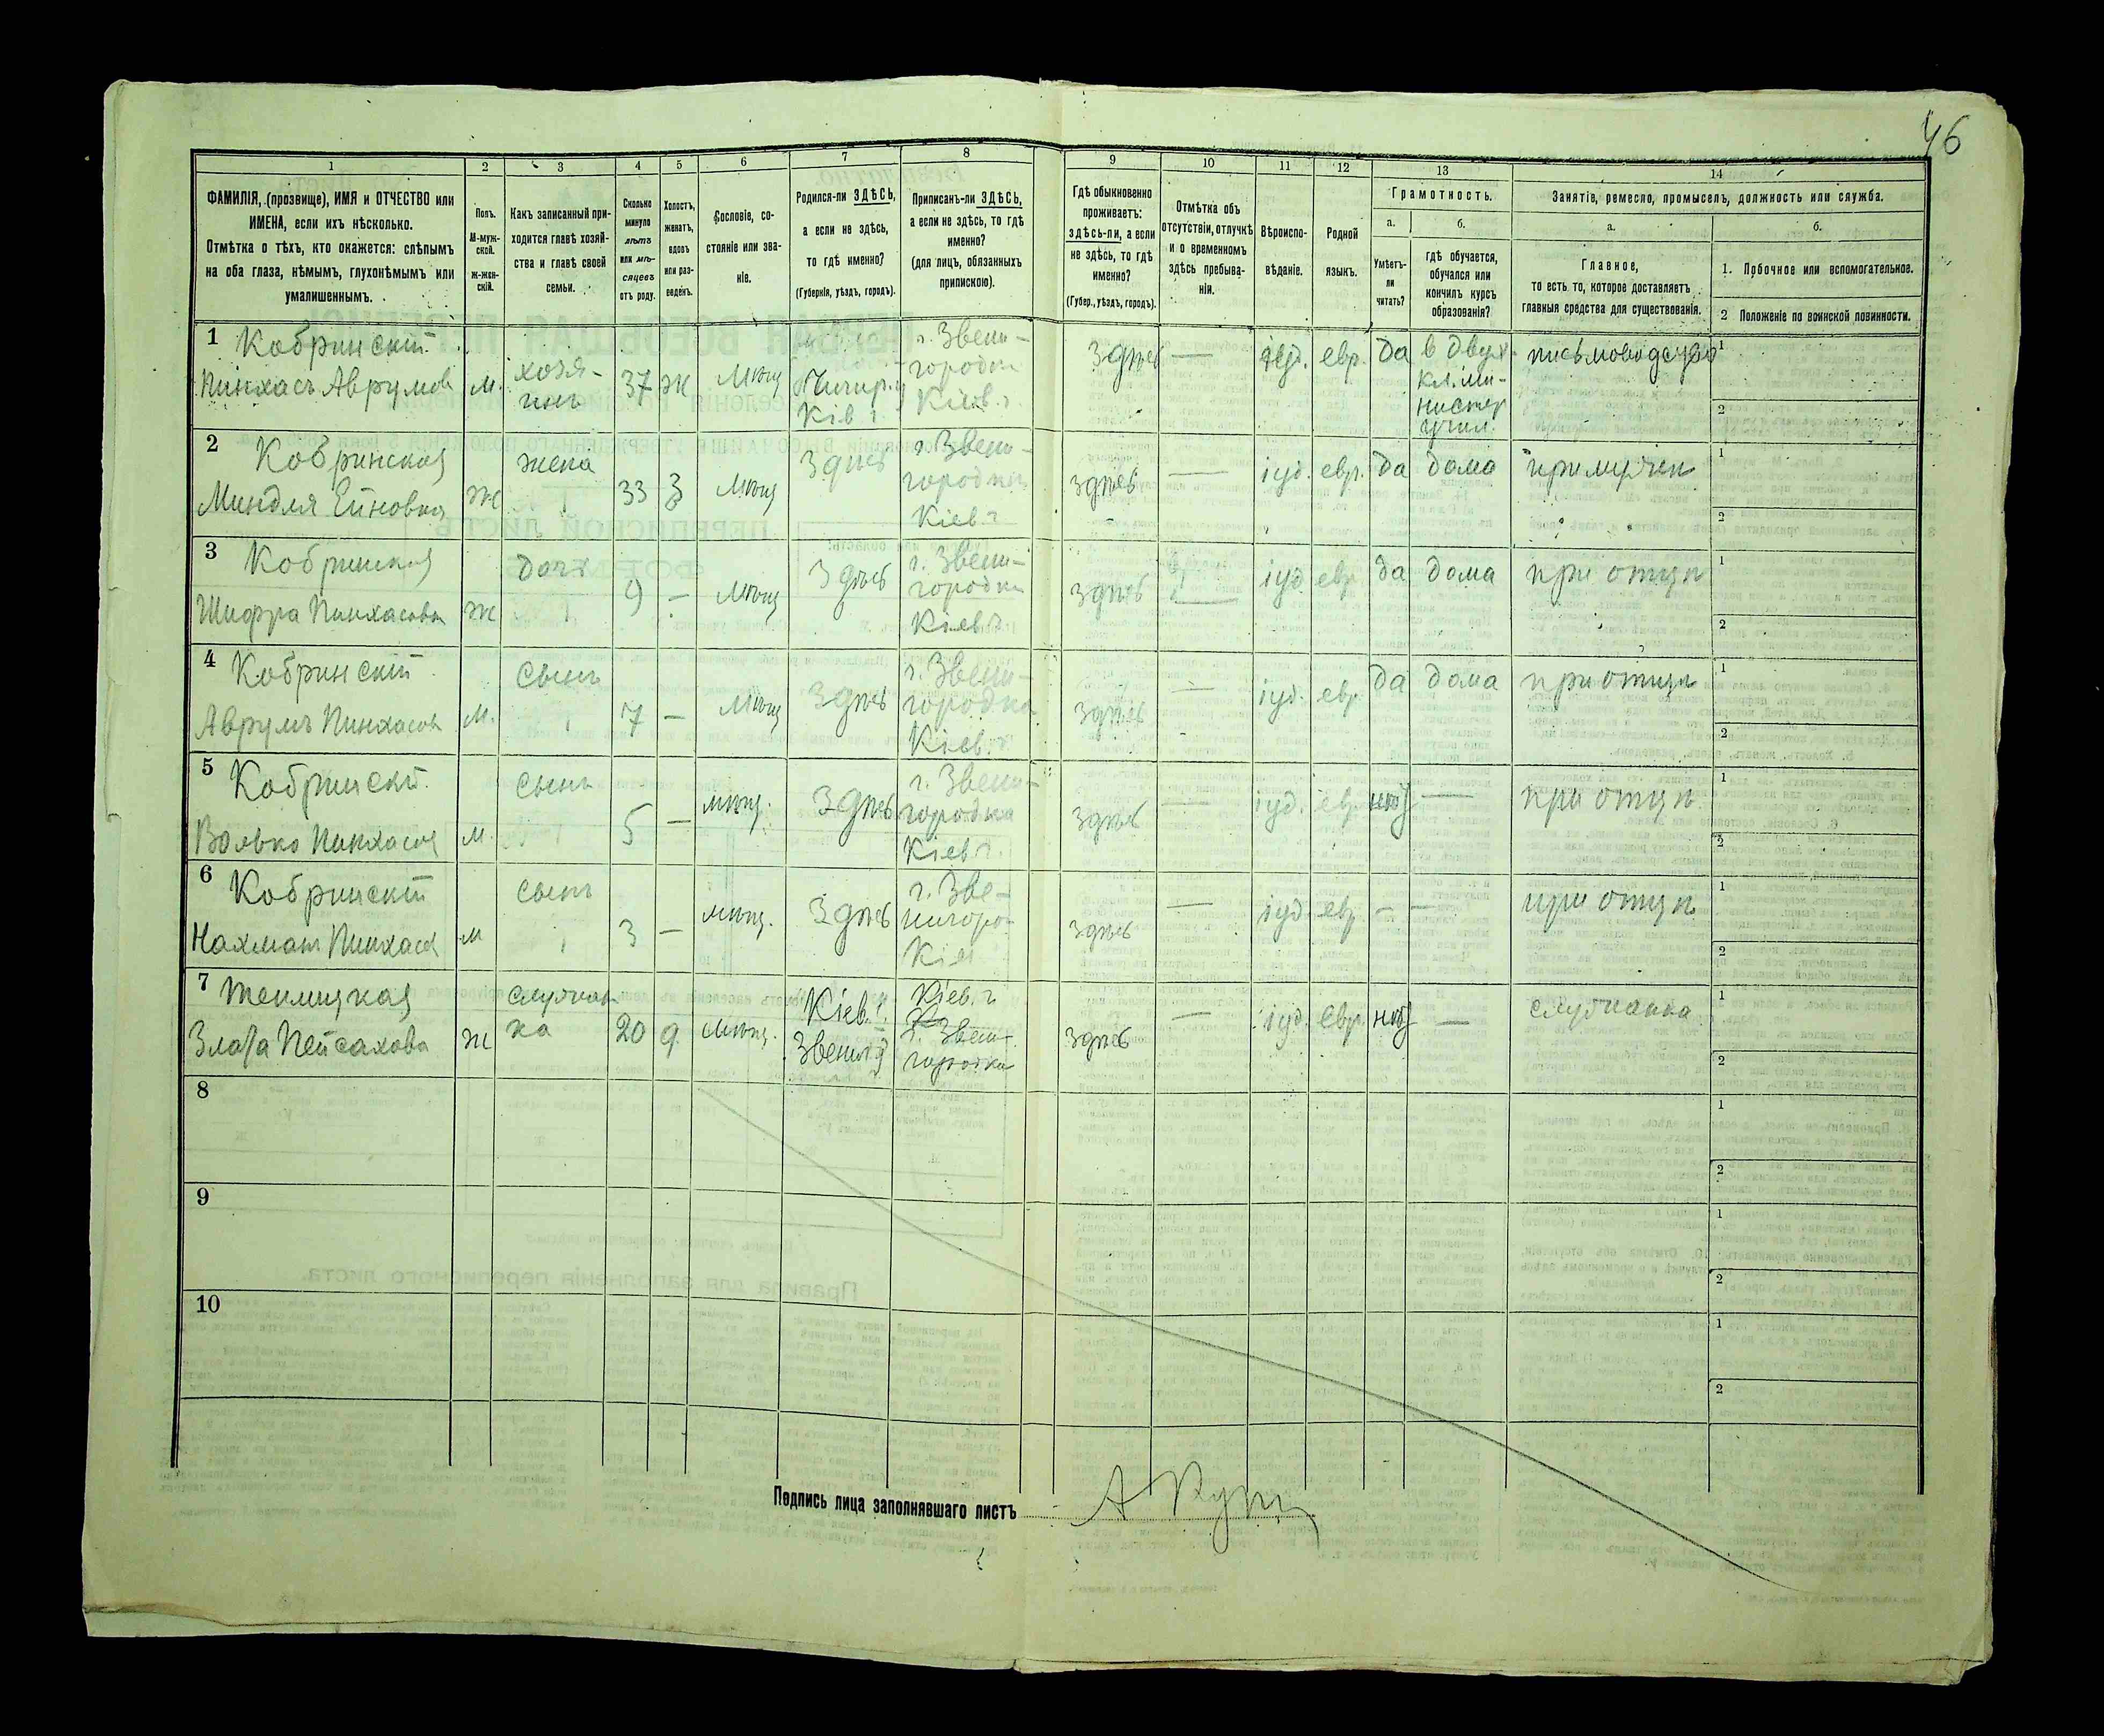 46
1 2 3 4 5 6 7 8 9 10 11 12 13 14
ФАМИЛІЯ, (прозвище), ИМЯ и ОТЧЕСТВО или
ИМЕНА, если ихъ нѣсколько.
Отмѣтка о тѣхъ, кто окажется: слѣпымъ
на оба глаза, нѣмымъ, глухонѣмымъ или
умалишеннымъ.
Полъ.
М-муж-
ской.
Ж-жен-
скій.
Какъ записанный при-
ходится главѣ хозяй-
ства и главѣ своей
семьи.
Сколько
минуло
лѣтъ
или мѣ-
сяцевъ
отъ роду.
Холостъ,
женатъ,
вдовъ
или раз-
веденъ.
Сословіе, со-
стояніе или зва-
ніе.
Родился-ли ЗДѢСЬ,
а если не здѣсь,
то гдѣ именно?
(Губернія, уѣздъ, городъ).
Приписанъ-ли ЗДѢСЬ,
а если не здѣсь, то гдѣ
именно?
(для лицъ, обязанныхъ
припискою).
Гдѣ обыкновенно
проживаетъ:
здѣсь-ли, а если
не здѣсь, то гдѣ
именно?
(Губер., уѣздъ, городъ).
Отмѣтка объ
отсутствіи, отлучкѣ
и о временномъ
здѣсь пребыва-
ніи.
Вѣроиспо-
вѣданіе.
Родной
языкъ.
Грамотность.
а. б.
Умѣетъ-
ли
читать?
гдѣ обучается,
обучался или
кончилъ курсъ
образованія?
Занятіе, ремесло, промыселъ, должность или служба.
а. б.
Главное,
то есть то, которое доставляетъ
главныя средства для существованія.
1. Побочное или вспомогательное.
2 Положеніе по воинской повинности.
1 Кобринскій
Пинхасъ Аврумов
м.
хозя-
инъ
37 ж мѣщ
Чигир. у
Кіев г
г. Звени-
городка
Кіев. г.
Здѣсь — іуд. евр. да
в двух
кл. ми-
нистер
учил.
письмоводство
1
2
2 Кобринская
Миндля Ейновна
ж жена 33 З мѣщ Здѣсь
г. Звени-
городка
Кіев г
здѣсь — іуд. евр. да дома при мужѣ
1
2
3 Кобринская
Шифра Пинхасова
ж дочь 9 — мѣщ Здѣсь
г. Звени-
городка
Кіев г
здѣсь — іуд евр да дома при отцѣ
1
2
4 Кобринскій
Аврумъ Пинхасов
м. сынъ 7 — мѣщ Здѣсь
г. Звени-
городка
Кіев. г.
здѣсь — іуд. евр. да дома при отцѣ
1
2
5 Кобринскій
Волько Пинхасов
м. сынъ 5 — мѣщ. Здѣсь
г. Звени-
городка
Кіев г.
здѣсь — іуд. евр. нѣт — при отцѣ
1
2
6 Кобринскій
Нахман Пинхасов
м сынъ 3 — мѣщ. Здѣсь
г. Зве-
нигоро-
Кіев
здѣсь — іуд. евр. — — при отцѣ
1
2
7 Теплицкая
Злата Пейсахова
ж
служан-
ка
20 д. мѣщ.
Кіев. г.
Звениг у
Кіев. г
г. Звени-
городка
здѣсь — іуд. Евр. нѣт — служанка
1
2
8
1
2
9
1
2
10
1
2
Подпись лица заполнявшаго листъ